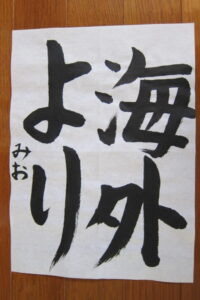 海外
より
みお